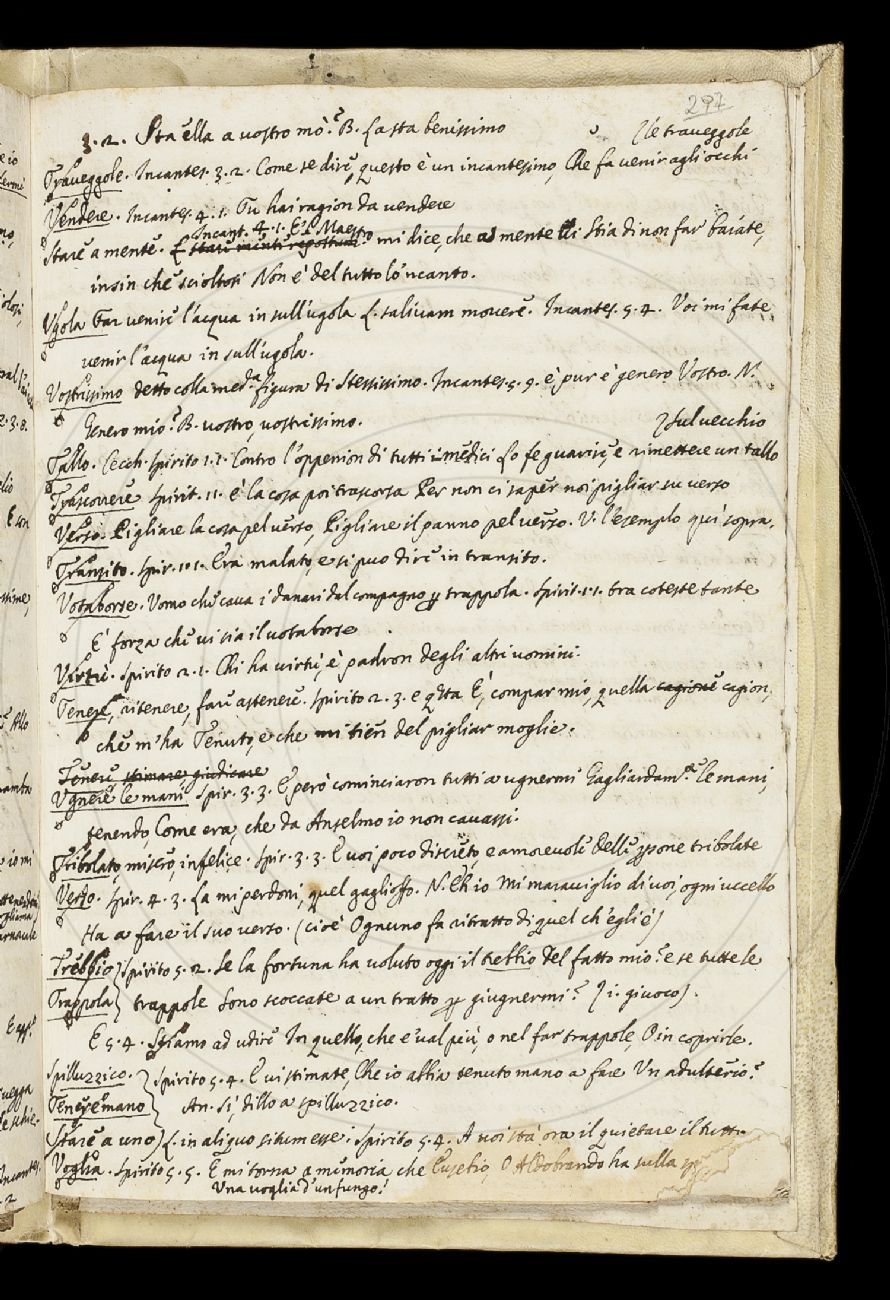 297
3. 2. Sta ella a vostro mò? B. La sta benissimo
le traveggole
Traveggole. Incantes. 3. 2. Come se dire, questo è un incantesimo, Che fa venir agli occhi
Vendere. Incantes. 4. 1. Tu hai ragion da vendere
Incant. 4. 1. E'l Maestro
Stare a mente. mi dice, che a mente li stia di non far baiate,
insin che scioltosi Non è del tutto lo 'ncanto.
Ugola Far venire l'acqua in sull'ugola L. salivam movere. Incantes. 5. 4. Voi mi fate
venir l'acqua in sull'ugola.
Vostrissimo detto colla med.a figura di Stessissimo. Incantes. 5. 9. è pur è genero Vostro. N.
Genero mio? B. vostro, vostrissimo.
sul vecchio
Tallo. Cecch. Spirito 1. 1. Contro l'oppenion di tutti i medici Lo fe guarire, e rimettere un tallo
Trascorrere Spirit. 1. 1. è la cosa poi trascorsa Per non ci saper noi pigliar su verso
Verso. Pigliare la cosa pel verso, Pigliare il panno pel verso. V. l'esemplo qui sopra.
Transito. Spir. 1. 1. Era malato, e si può dire in transito.
Votaborse. Uomo che cava i danari dal compagno per trappola. Spirit. 1. 1. tra coteste tante
È forza che vi sia il votaborse
Virtù. Spirito 2. 1. Chi ha virtù, è padron degli altri uomini.
Tenere, ritenere, fare astenere. Spirito 2. 3. e qta E', compar mio, quella cagione cagion,
che m'ha Tenuto, e che mi tien del pigliar moglie.
Tenere stimare, giudicare
Ugnere le mani Spir. 3. 3. E però cominciaron tutti a ugnermi Gagliardam.e le mani,
tenendo, Come era, che da Anselmo io non cavassi.
Tribolato, misero, infelice. Spir. 3. 3. E voi poco discreto, e amorevole delle psone tribolate
Verso. Spir. 4. 3. La mi perdoni, quel gaglioffo. N. Eh io mi maraviglio di voi, ogni uccello
Ha a fare il suo verso. (cioè Ognuno fa ritratto di quel ch'egli è)
Trebbio Spirito 5. 2. Se la fortuna ha voluto oggi il trebbio del fatto mio? e se tutte le
Trappola trappole Sono scoccate a un tratto per giugnermi? (i. giuoco).
E 5. 4. Stiamo ad udire In quello, che e' val più, o nel far trappole, O in coprirle.
Spilluzzico. Spirito 5. 4. E vi stimate, Che io abbia tenuto mano a fare Un adulterio?
Tenere mano An. sì, dillo a spilluzzico.
Stare a uno L. in aliquo situm esse. Spirito 5. 4. A voi sta ora il quietare il tutto
Voglia. Spirito 5. 5. E mi torna a memoria che Eusebio, O Aldobrando ha sulla
Una voglia d'un fungo.